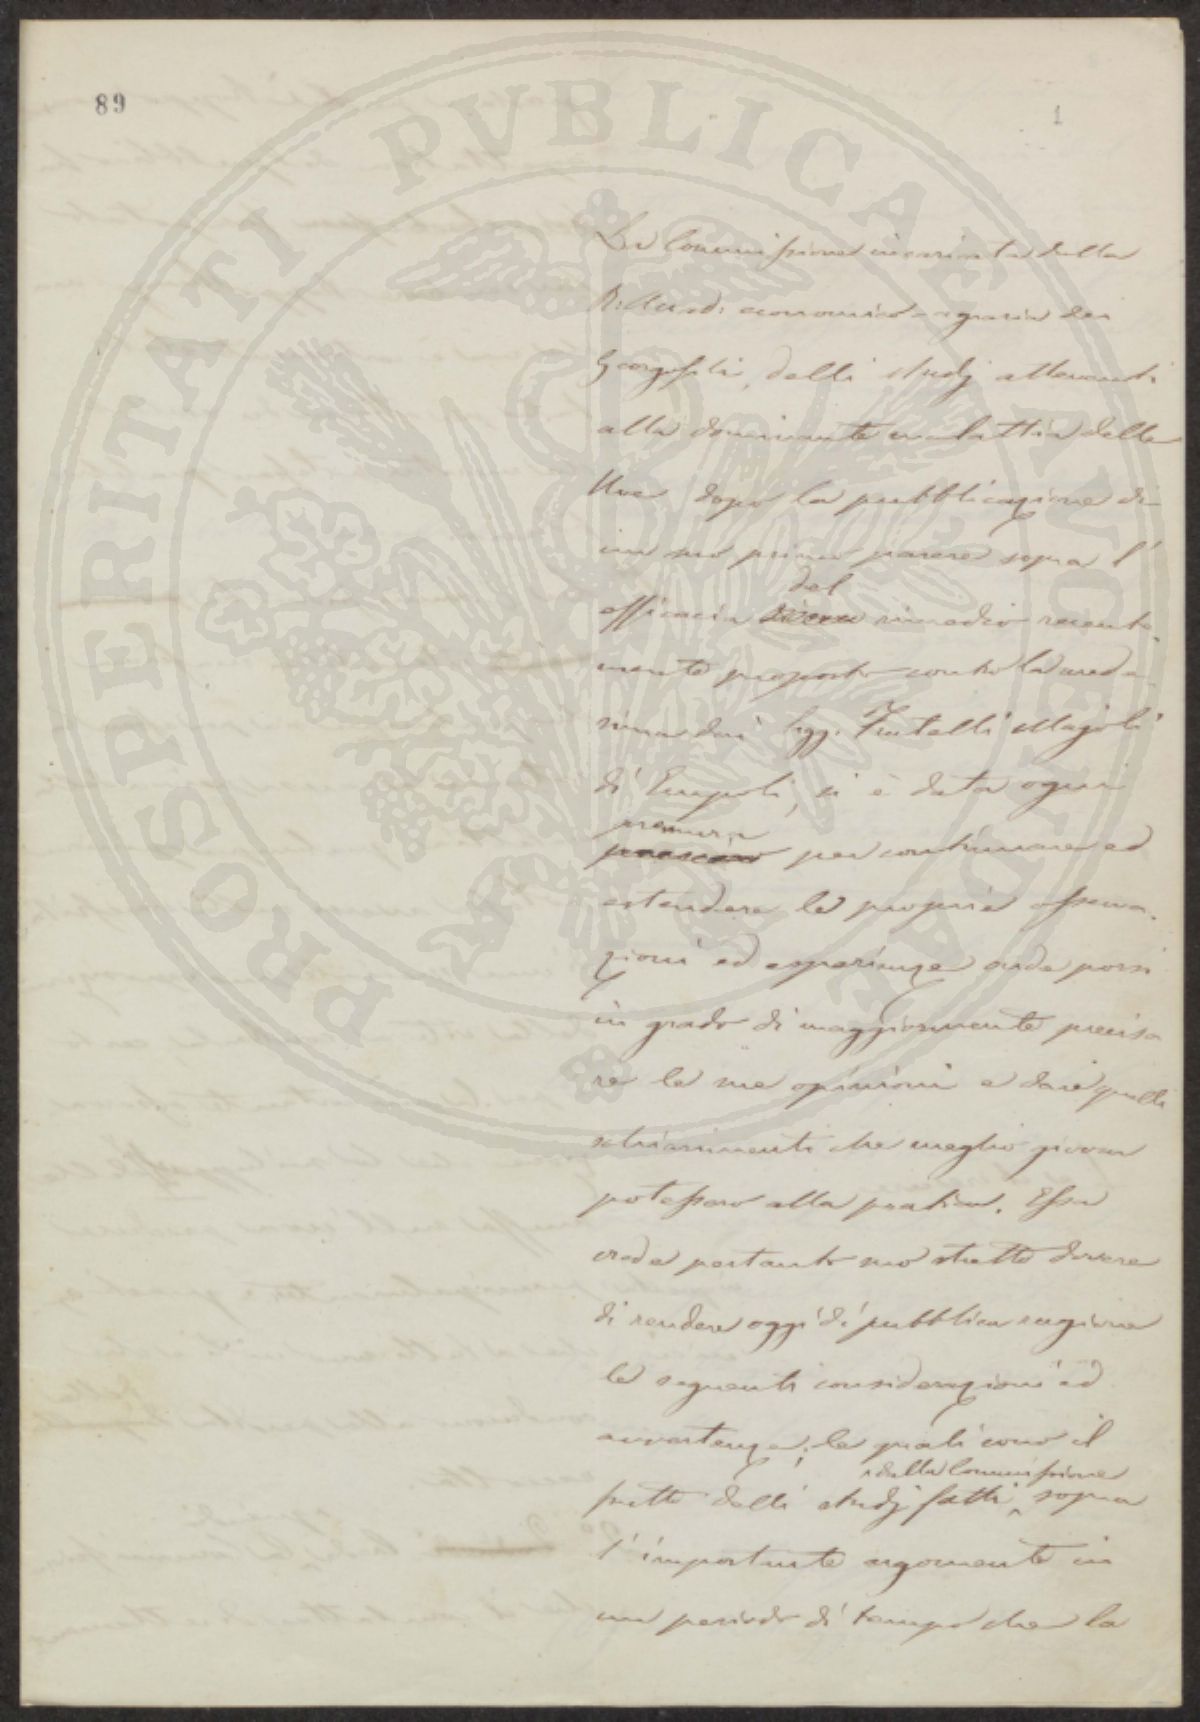 89
1
La Commissione incaricata dalla
R. Accad: economico-agraria dei
Georgofili, delli studj attenenti
alla dominante malattia delle
Uve dopo la pubblicazione di
un suo primo parere sopra l'
del
efficacia rimedio recente-
mente proposto contro la mede-
sima dai Sigg. Fratelli Majoli
di Empoli, si è data ogni
premura
per continuare ed
estendere le proprie osserva-
zioni ed esperienze onde porsi
in grado di maggiormente precisa
re le sue opinioni e dare quelli
schiarimenti che meglio giovar
potessero alla pratica. Essa
crede pertanto suo stretto dovere
di rendere oggi di pubblica ragione
le seguenti considerazioni ed
avvertenze; le quali sono il
dalla Commissione
frutto delli studj fatti, sopra
l'importante argomento in
un periodo di tempo che la
PROSPERITATI PVBLICAE AVGENDAE